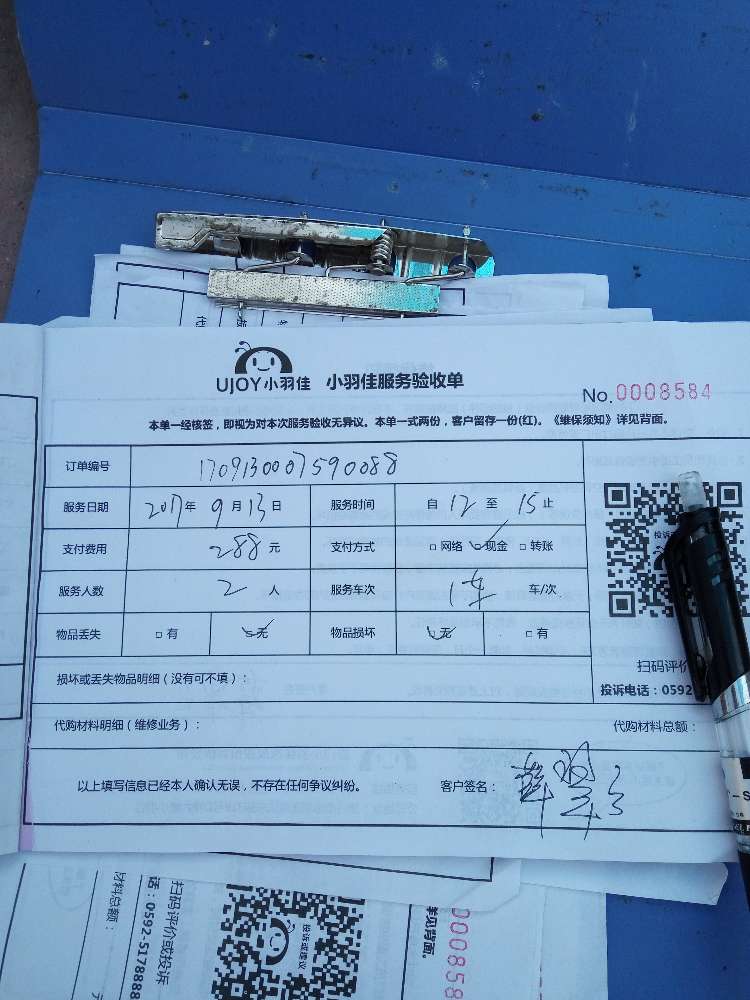 UJOY小羽佳 小羽佳服务验收单
No.0008584
本单一经核签，即视为对本次服务验收无异议。本单一式两份，客户留存一份(红)。《维保须知》详见背面。
订单编号 1709130007590088
服务日期 2017年 9月13日 服务时间 自 12 至 15 止
支付费用 288元 支付方式 □网络 ☑现金 □转账
服务人数 2 人 服务车次 1车 车/次
物品丢失 □有 ☑无 物品损坏 ☑无 □有
扫码评价
损坏或丢失物品明细（没有可不填）：
投诉电话：0592
代购材料明细（维修业务）： 代购材料总额：
以上填写信息已经本人确认无误，不存在任何争议纠纷。 客户签名：
材料总额：
话：0592-5178888
扫码评价或投诉
投诉或建议
详见背面。
000858